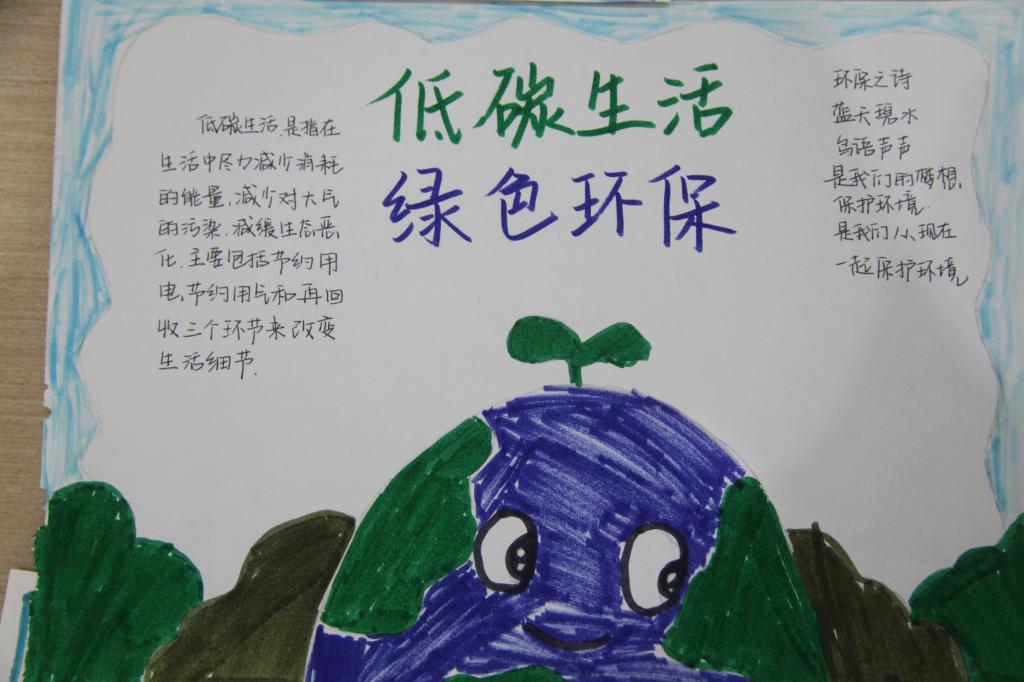 低碳生活
绿色环保
低碳生活,是指在
生活中尽力减少消耗
的能量,减少对大气
的污染,减缓生态恶
化,主要包括节约用
电,节约用气和再回
收三个环节来改变
生活细节.
环保之诗
蓝天碧水
鸟语声声
是我们的梦想,
保护环境
是我们从现在
一起保护环境